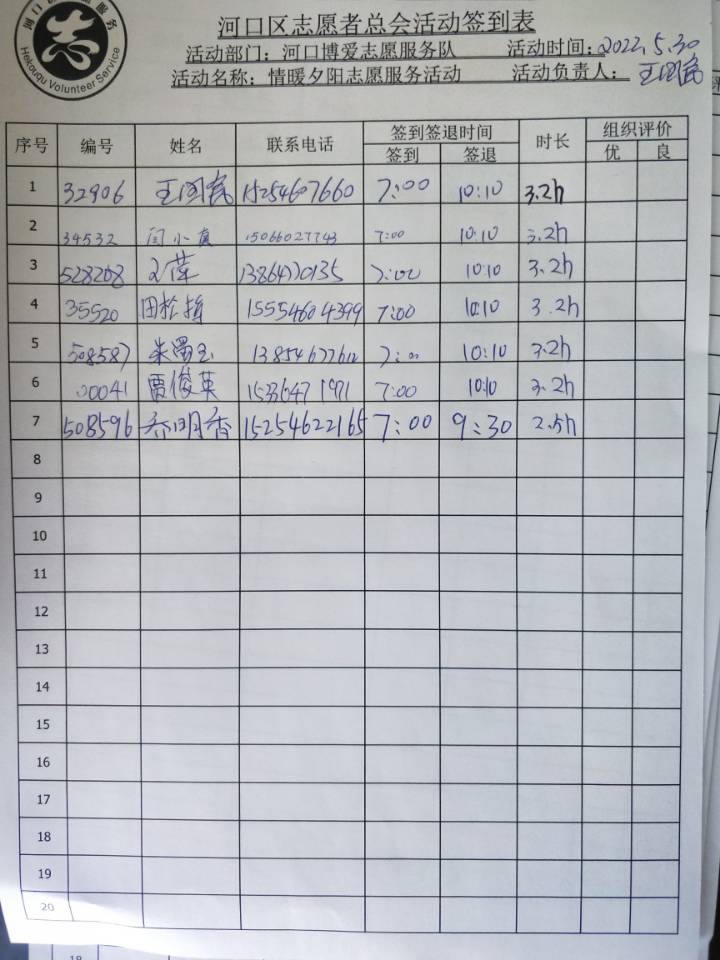 河口区志愿者总会活动签到表
活动部门：河口博爱志愿服务队 活动时间：2022.5.30
活动名称：情暖夕阳志愿服务活动 活动负责人：王国宾
Hekouqu Volunteer Service
序号 编号 姓名 联系电话 签到签退时间 时长 组织评价
签到 签退 优 良
1 32906 王国宾 15254607660 7:00 10:10 3.2h
2 34532 闫小真 15066027743 7:00 10:10 3.2h
3 528268 13864770135 7:00 10:10 3.2h
4 35520 15554604399 7:00 10:10 3.2h
5 508587 7:00 10:10 3.2h
6 00041 贾俊英 1533647 1971 7:00 10:10 3.2h
7 508596 乔明香 15254622165 7:00 9:30 2.5h
8
9
10
11
12
13
14
15
16
17
18
19
20